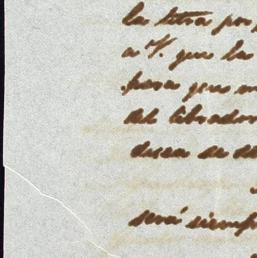 la letra por
a V. que la
para que
del librador
desea de
será siempre